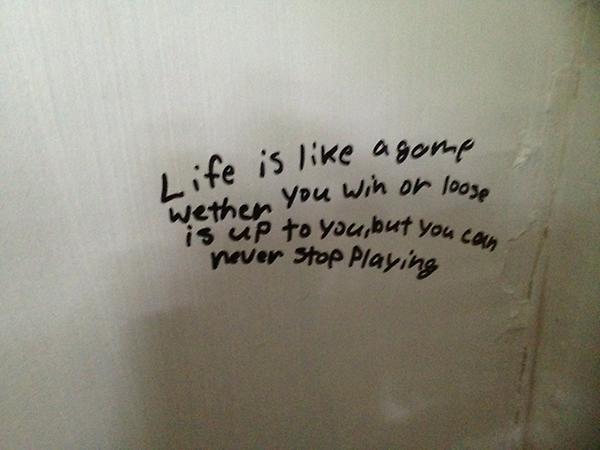 Life is like a game
wether you win or loose
is up to you, but you can
never stop playing